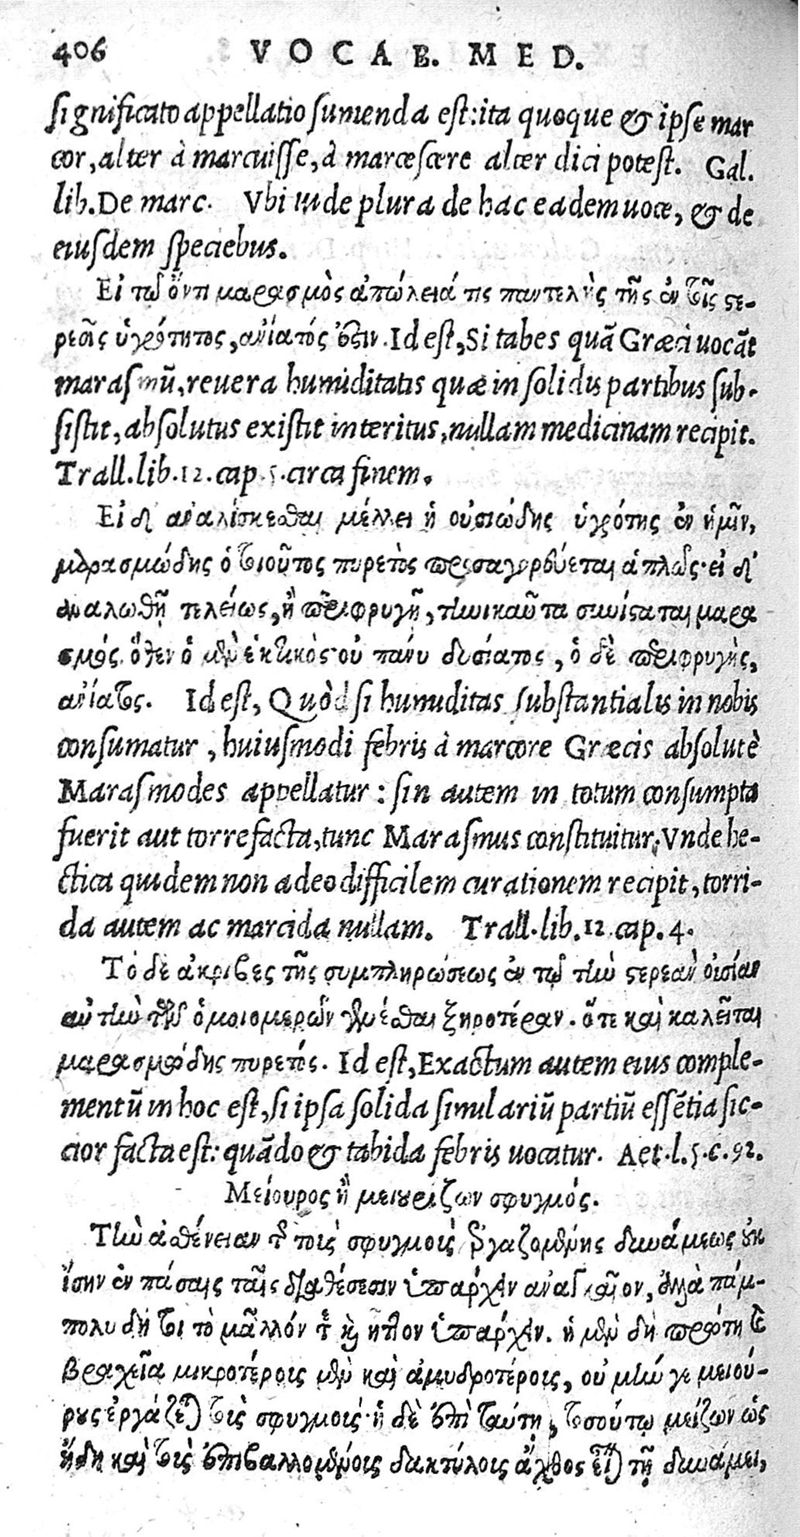 406 VOCAB. MED.
significato appellatio sumenda est: ita quoque & ipse mar
cor, alter à marcuisse, à marcescere alter dici potest. Gal.
lib. De marc. Vbi inde plura de hac eadem uoce, & de
eiusdem speciebus.
Εἰ τῷ ὄντι μαρασμὸς ἀπώλειά τις παντελὴς τῆς ἐν τοῖς στε-
ρεοῖς ὑγρότητος, ἀνίατός ἐστιν. Id est, Si tabes quā Græci uocāt
marasmū, reuera humiditatis quæ in solidis partibus sub-
sistit, absolutus existit interitus, nullam medicinam recipit.
Trall. lib. 12. cap. 5. circa finem.
Εἰ δ' ἀναλίσκεσθαι μέλλει ἡ οὐσιώδης ὑγρότης ἐν ἡμῖν,
μαρασμώδης ὁ τοιοῦτος πυρετὸς προσαγορεύεται ἁπλῶς· εἰ δ'
ἀναλωθῇ τελείως, ἢ περιφρυγῇ, τηνικαῦτα συνίσταται μαρα
σμός. ὅθεν ὁ μὲν ἑκτικὸς οὐ πάνυ δυσίατος, ὁ δὲ περιφρυγὴς,
ἀνίατος. Id est, Quòd si humiditas substantialis in nobis
consumatur, huiusmodi febris à marcore Græcis absolutè
Marasmodes appellatur: sin autem in totum consumpta
fuerit aut torrefacta, tunc Marasmus constituitur. Vnde he-
ctica quidem non adeo difficilem curationem recipit, torri-
da autem ac marcida nullam. Trall. lib. 12. cap. 4.
Τὸ δὲ ἀκριβες τῆς συμπληρώσεως ἐν τῷ τὴν στερεὰν οὐσίαν
αὐτὴν τῶν ὁμοιομερῶν γενέσθαι ξηροτέραν. ὅτε καὶ καλεῖται
μαρασμώδης πυρετός. Id est, Exactum autem eius comple-
mentū in hoc est, si ipsa solida similariū partiū essētia sic-
cior facta est: quādo & tabida febris uocatur. Aet. l. 5. c. 92.
Μείουρος ἢ μειουρίζων σφυγμός.
Τὴν ἀσθένειαν τῆς τοὺς σφυγμοὺς ἐργαζομένης δυνάμεως οὐκ
ἴσην ἐν πάσαις ταῖς διαθέσεσιν ὑπάρχειν ἀναγκαῖον, ἀλλὰ πάμ-
πολυ δή τοι τὸ μᾶλλόν τε καὶ ἧττον ὑπάρχειν. ἡ μὲν δὴ πρώτη τε
βραχεῖα μικροτέροις μὲν καὶ ἀμυδροτέροις, οὐ μήν γε μειού-
ρους ἐργάζεται τοὺς σφυγμούς· ἡ δὲ ἐπὶ ταύτῃ, τοσούτῳ μείζων ὡς
ἤδη καὶ τοὺς ἐπιβαλλομένους δακτύλους ἄχθος εἶναι τῇ δυνάμει,